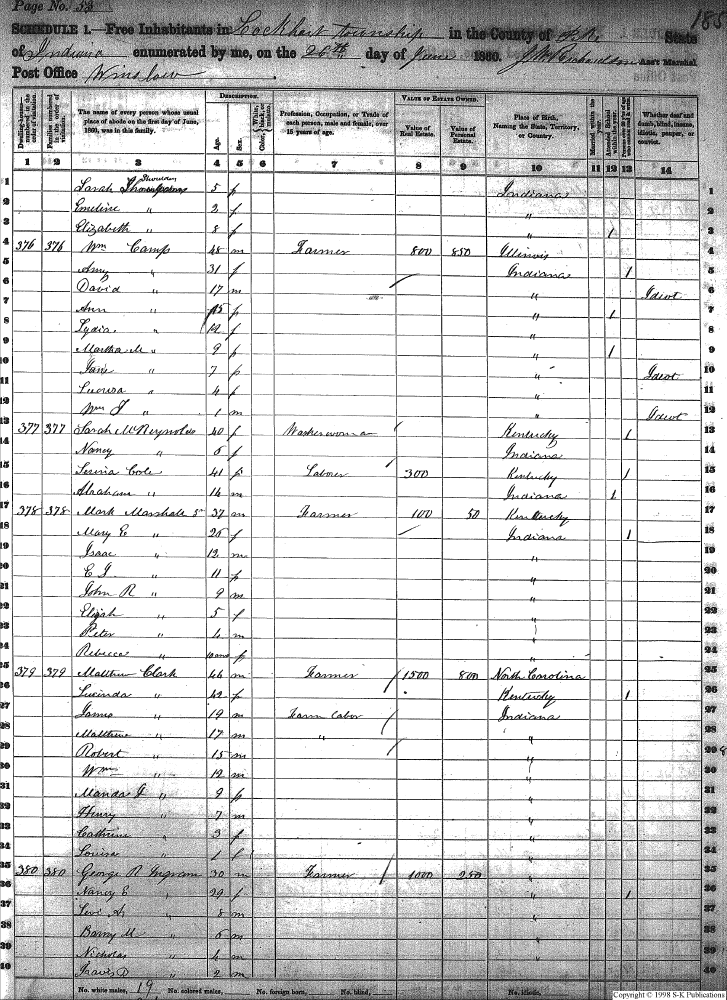 Page No. 53
185
SCHEDULE 1.—Free Inhabitants in Lockhart Township in the County of Pike State
of Indiana enumerated by me, on the 20th day of June 1860. J. W. Richardson Ass't Marshal
Post Office Winslow
Dwelling-houses numbered in the order of visitation.
Families numbered in the order of visitation.
The name of every person whose usual place of abode on the first day of June, 1860, was in this family.
DESCRIPTION.
Age.
Sex.
Color, White, black, or mulatto.
Profession, Occupation, or Trade of each person, male and female, over 15 years of age.
VALUE OF ESTATE OWNED.
Value of Real Estate.
Value of Personal Estate.
Place of Birth, Naming the State, Territory, or Country.
Married within the year.
Whether deaf and dumb, blind, insane, idiotic, pauper, or convict.
1 2 3 4 5 6 7 8 9 10 11 12 13 14
1 Sarah 5 f Indiana 1
2 Emeline " 2 f " 2
3 Elizabeth " 8 f " / 3
4 376 376 Wm Camp 48 m Farmer 800 850 Illinois 4
5 Amy " 31 f Indiana / 5
6 David " 17 m " Ideot 6
7 Ann " 15 f " / 7
8 Lydia " 12 f " 8
9 Martha M " 9 f " / 9
10 Jane " 7 f " Ideot 10
11 " 4 f " 11
12 Wm J " 1 m " Ideot 12
13 377 377 Sarah McReynolds 40 f Washerwoman Kentucky / 13
14 Nancy " 6 f Indiana 14
15 Serena Cole 41 f Laborer 300 Kentucky / 15
16 Abraham " 14 m Indiana 1 16
17 378 378 Mark Marshall Sr 37 m Farmer 100 50 Kentucky 17
18 Mary E " 26 f Indiana / 18
19 Isaac " 12 m " 19
20 E J " 11 f " 20
21 John R " 9 m " 21
22 Elijah " 5 f " 22
23 Peter " 4 m " 23
24 Rebecca " f " 24
25 379 379 Matthew Clark 44 m Farmer 1500 800 North Carolina 25
26 Lucinda " 42 f Kentucky / 26
27 James " 19 m Farm Labor Indiana 27
28 Matthew " 17 m " " 28
29 Robert " 15 m " 29
30 Wm " 12 m " 30
31 Manda J " 9 f " 31
32 Henry " 7 m " 32
33 Catherine " 3 f " 33
34 Louisa " 1 f " 34
35 380 380 George R Ingram 30 m Farmer 1000 250 " 35
36 Nancy E " 29 f " / 36
37 Levi A " 8 m " 37
38 M " 6 m " 38
39 Nicholas " 4 m " 39
40 D " 2 m " 40
No. white males, 19 No. colored males, No. foreign born, No. blind, No. idiotic,
Copyright © 1998 S-K Publications